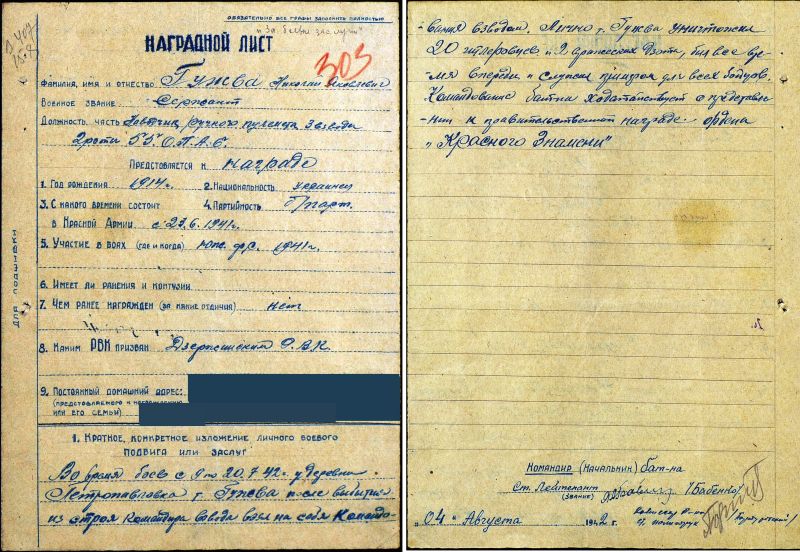 ОБЯЗАТЕЛЬНО ВСЕ ГРАФЫ ЗАПОЛНИТЬ ПОЛНОСТЬЮ
"За боевые заслуги"
НАГРАДНОЙ ЛИСТ
303
Фамилия, имя и отчество Гужва Николай Яковлевич
Военное звание Сержант
Должность, часть Наводчик ручного пулемета 3 взвода
2 роты 55 О.П.А.Б.
Представляется к награде
1. Год рождения 1914 г. 2. Национальность украинец
3. С какого времени состоит 4. Партийность б/парт.
в Красной Армии с 23.6.1941 г.
5. Участие в боях (где и когда) Юж. фр. 1941 г.
6. Имеет ли ранения и контузии
7. Чем ранее награжден (за какие отличия) нет
8. Каким РВК призван Дзержинским О.В.К.
9. Постоянный домашний адрес:
(представляемого к награждению
или его семьи)
Для подшивки
1. Краткое, конкретное изложение личного боевого
подвига или заслуг
Во время боев с 9 по 20.7.42 г. у деревни
Петропавловка т. Гужва после выбытия
из строя командира взвода взял на себя командо-
вания взводом. Лично т. Гужва уничтожил
20 гитлеровцев и 2 вражеских дзота, был все вре-
мя впереди и служил примером для всех бойцов.
Командование бат-на ходатайствует о представле-
нии к правительственной награде ордена
"Красного Знамени"
Командир (начальник) бат-на
Ст. Лейтенант /Бабенко/
(звание)
"04" Августа 1942 г.